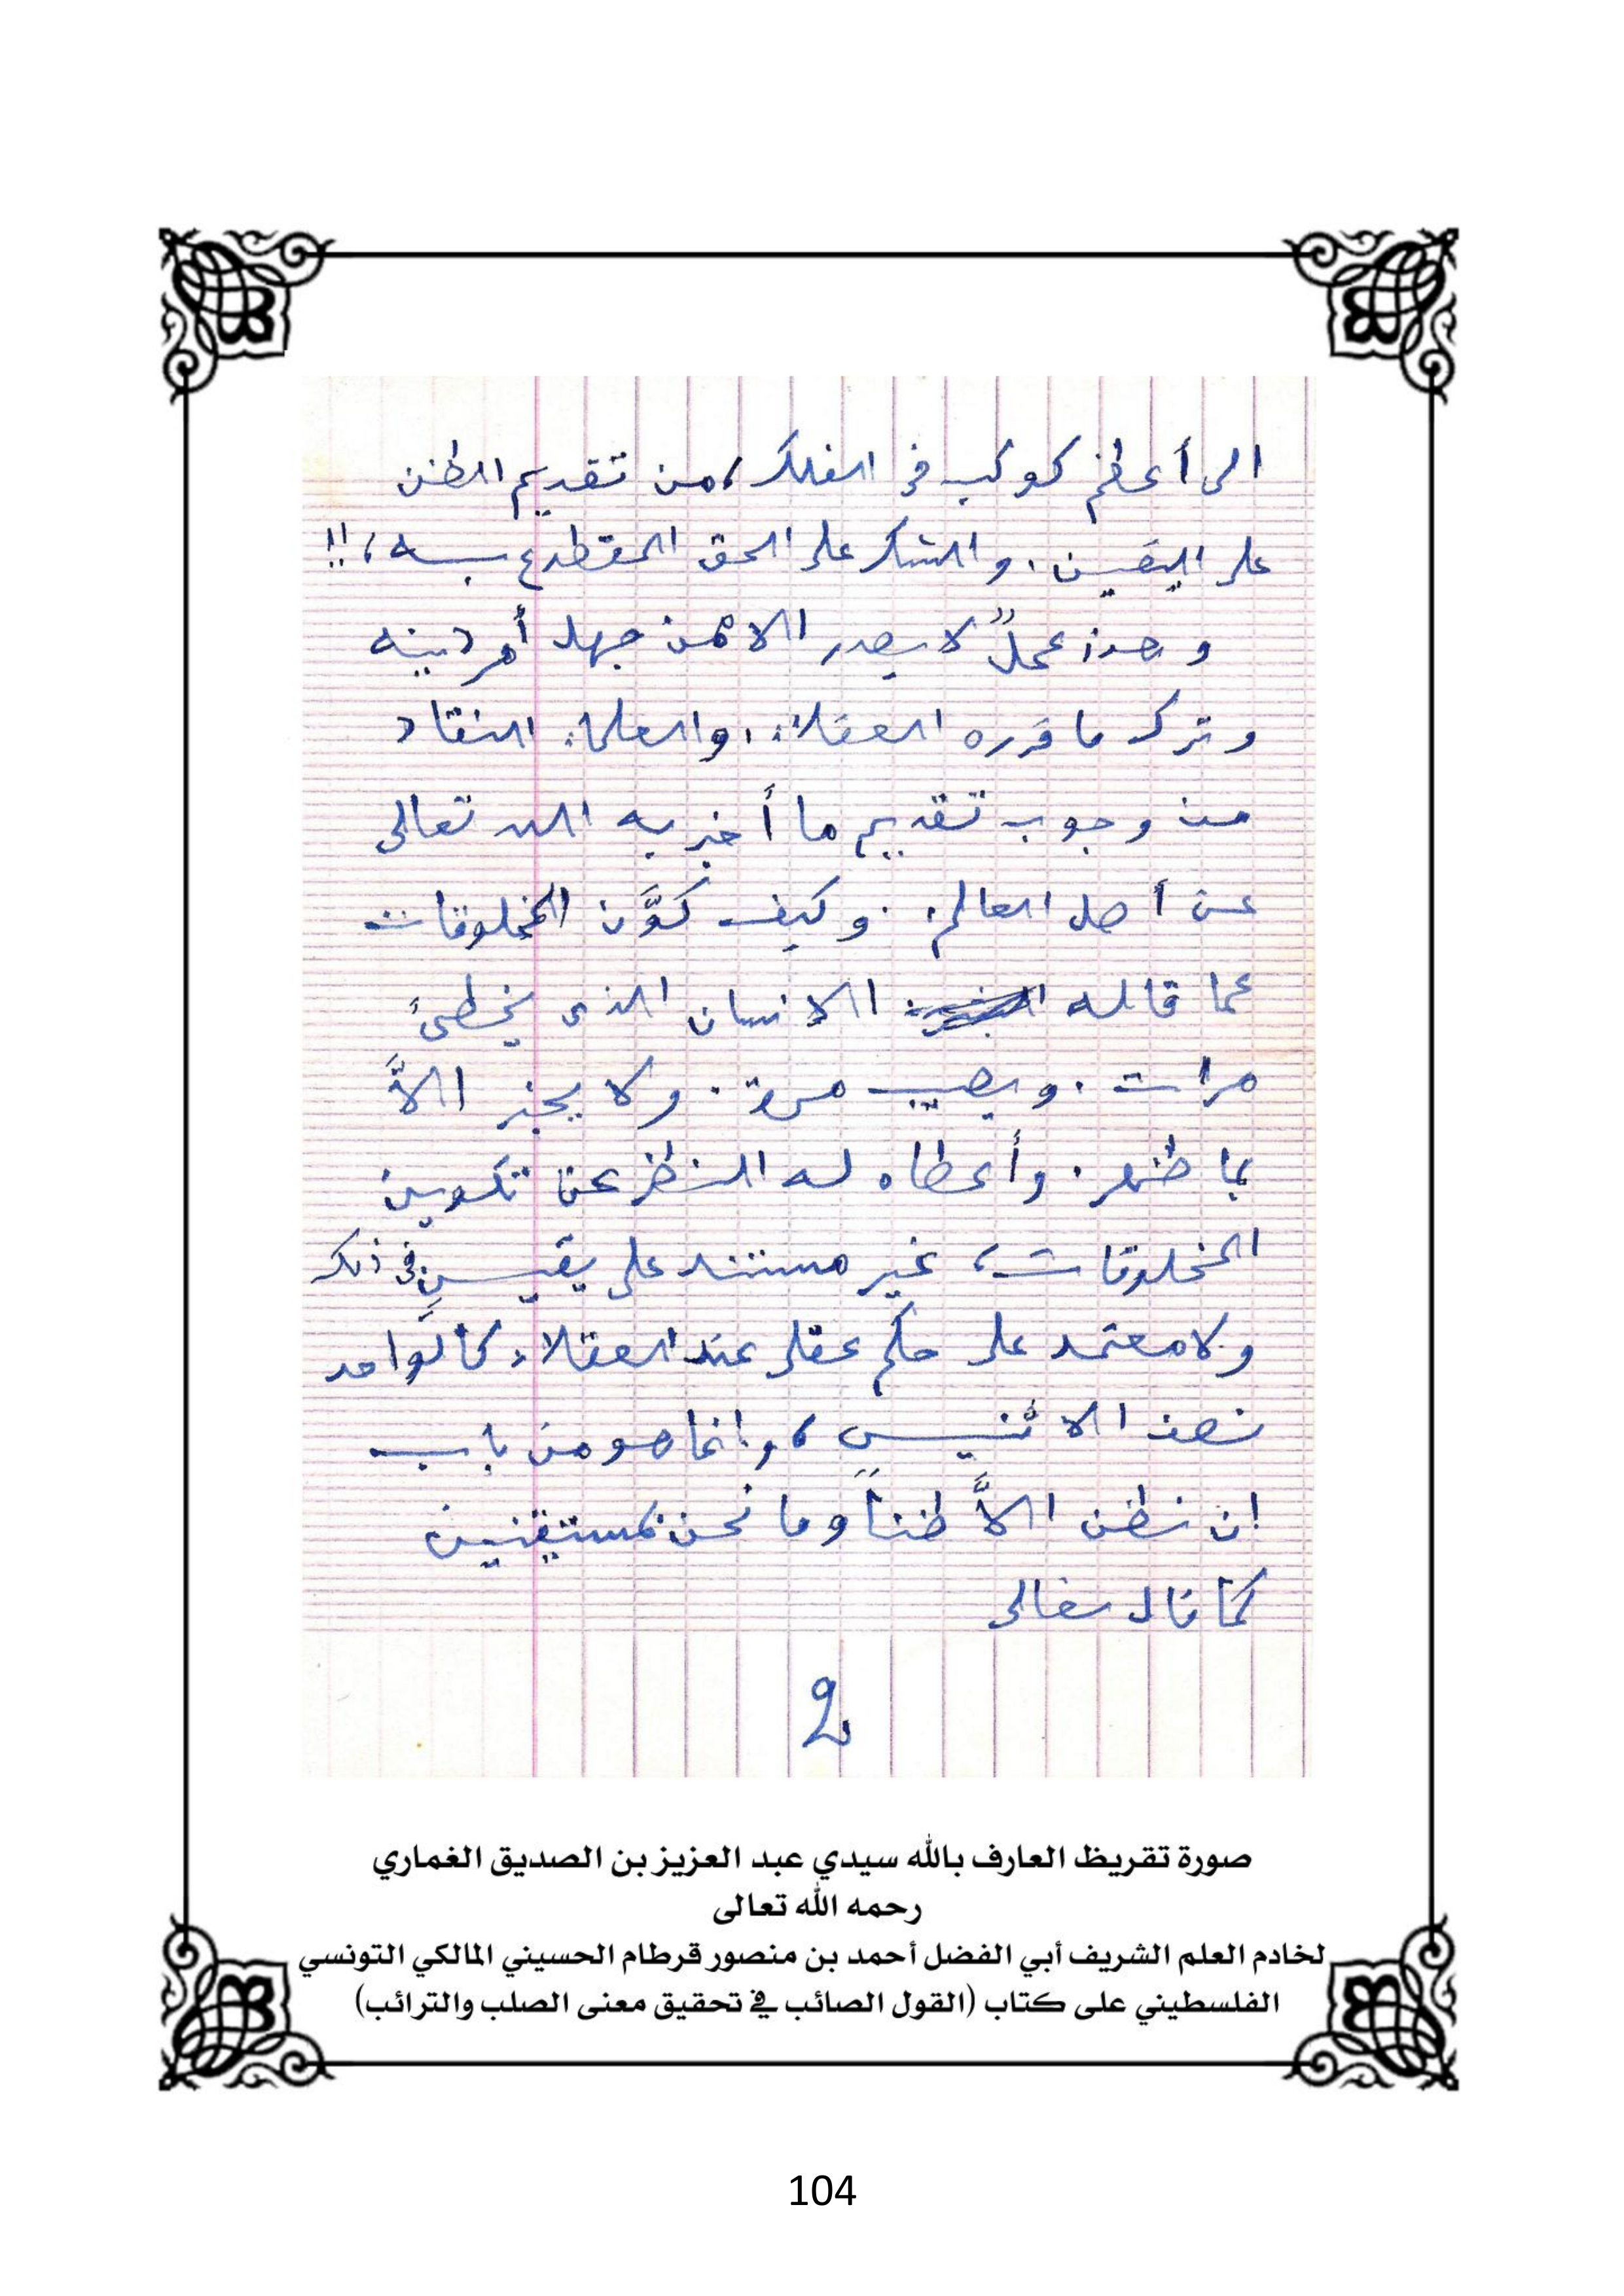 الى أعظم كوكب فى الفلك، من تقديم الظن
على اليقين. والشك على الحق المقطوع به،!!
وهذا عملٌ لا يصدر الا ممن جهل أمر دينه
وترك ما قرره العقلاء، والعلماء النقاد
من وجوب تقديم ما أخبر به الله تعالى
عن أصل العالم. وكيف كوَّن المخلوقات
عما قاله الانسان الذى يخطئ
مرات. ويصيب مرة. ولا يخبر الاَّ
بما ظهر. وأعطاه له النظر عن تكوين
المخلوقات، غير مستند على يقينٍ فى ذلك
ولا معتمد على حكم عقلى عند العقلاء. كالواحد
نصف الاثنين، وانما هو من باب
ان نظن الاَّ ظناً وما نحن بمستيقنين
كما قال تعالى
2
صورة تقريظ العارف بالله سيدي عبد العزيز بن الصديق الغماري
رحمه الله تعالى
لخادم العلم الشريف أبي الفضل أحمد بن منصور قرطام الحسيني المالكي التونسي
الفلسطيني على كتاب (القول الصائب في تحقيق معنى الصلب والترائب)
104